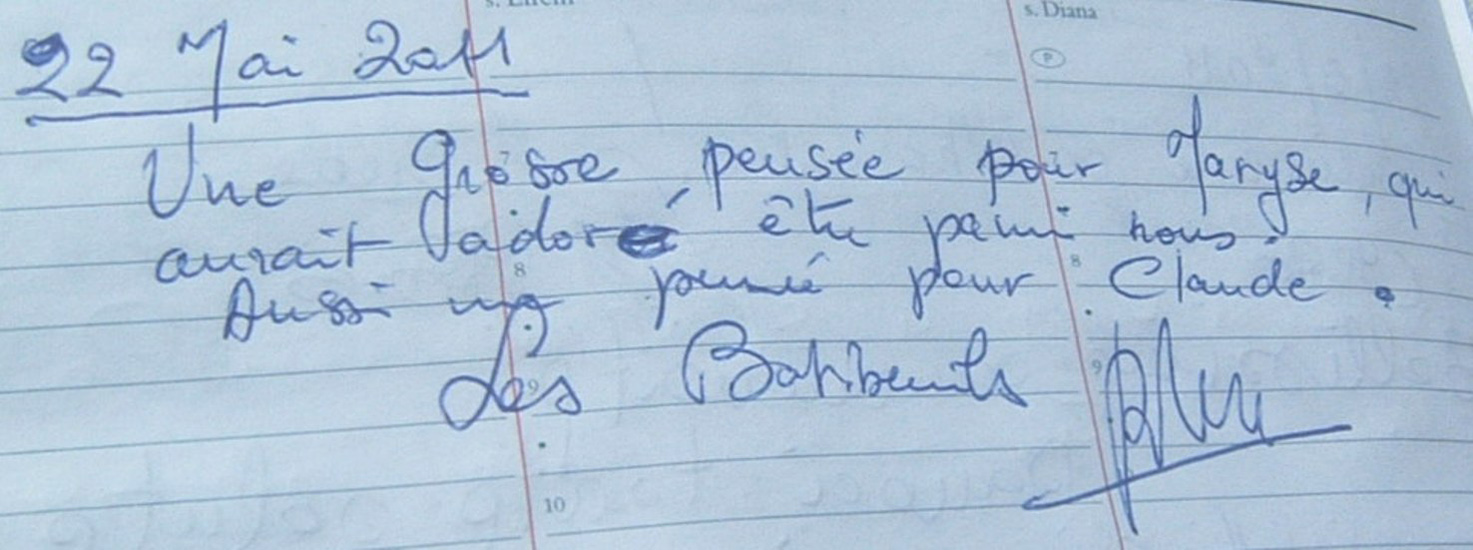 s. Diana
P
22 Mai 2011
Une Grosse pensée pour Maryse, qui
aurait adoré être parmi nous.
8 8
Aussi une pensée pour Claude.
Les
9 9
10